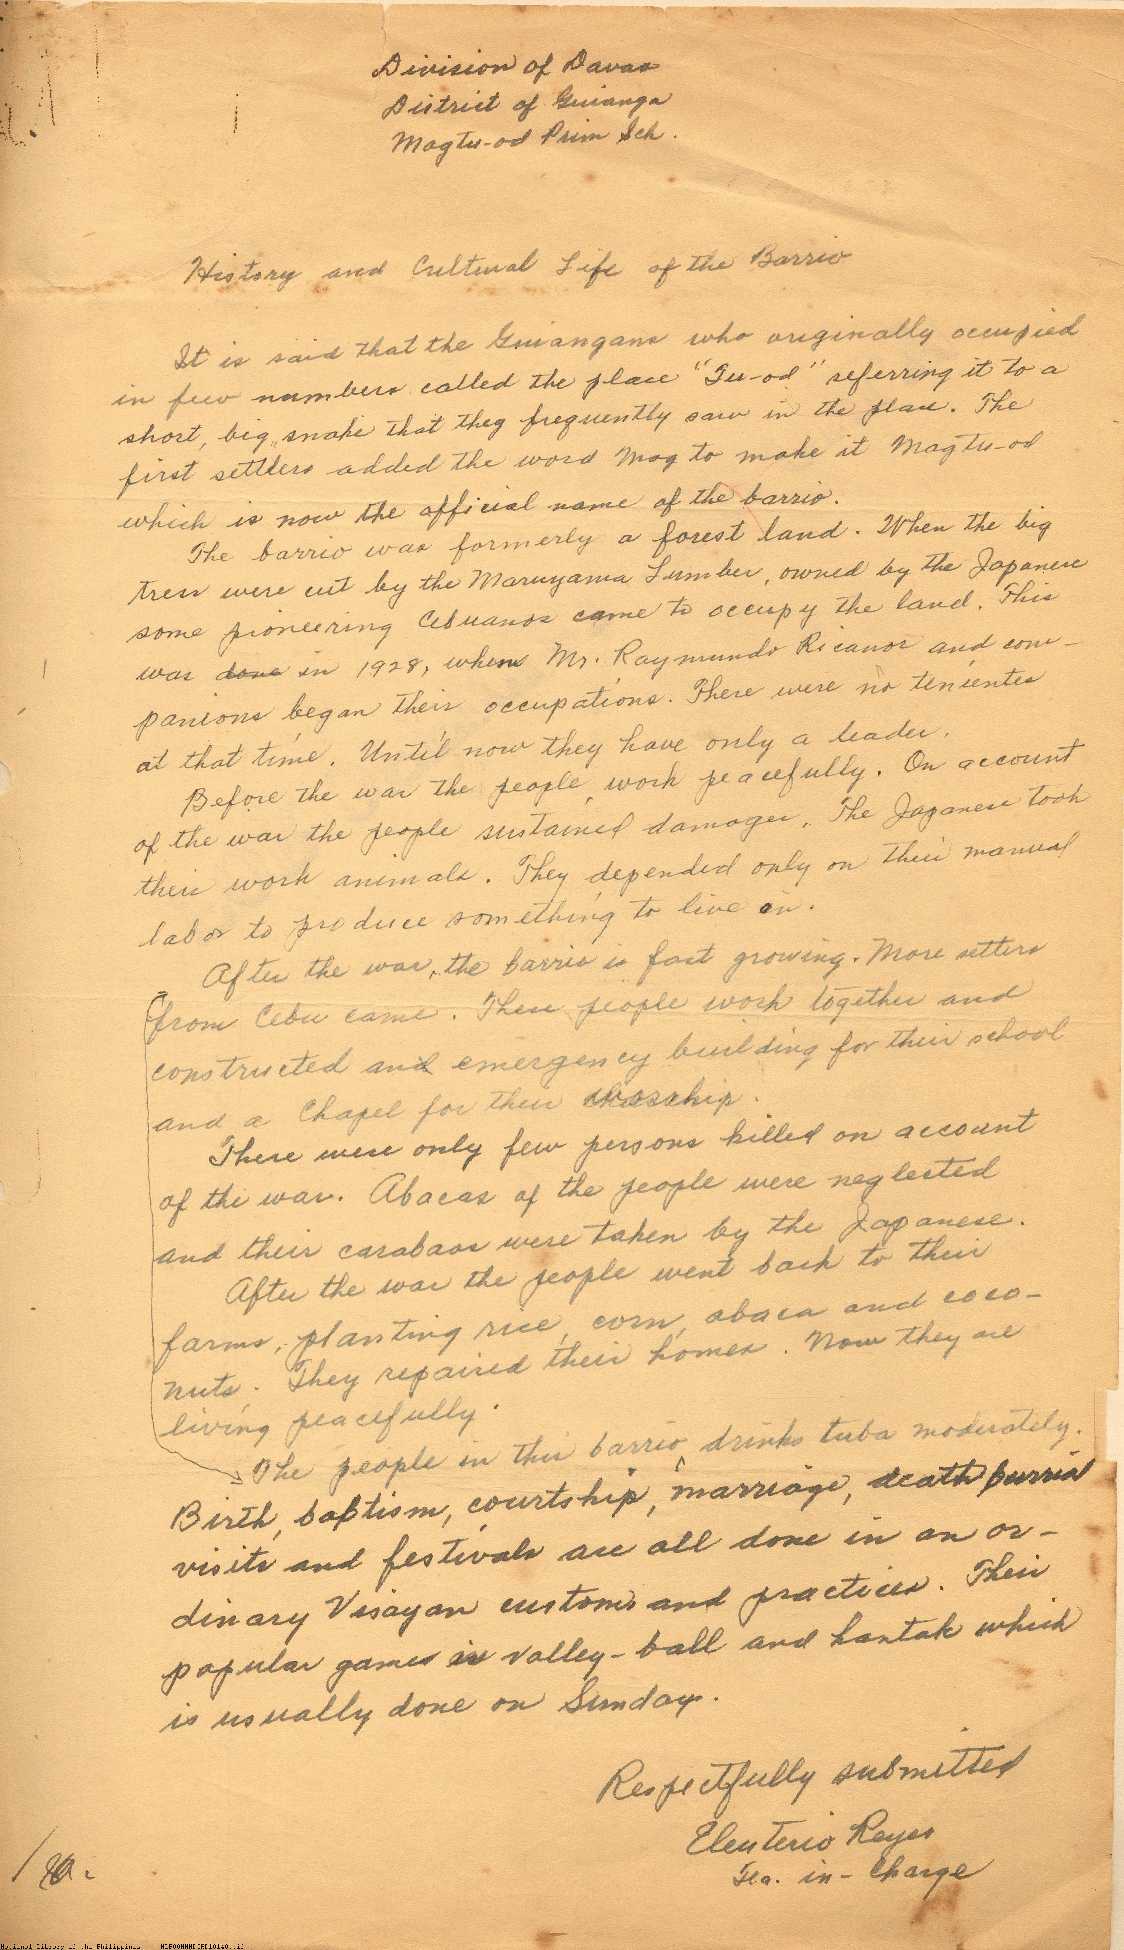 Division of Davao
District of Guianga
Magtu-od Prim Sch.
History and Cultural Life of the Barrio
It is said that the Guiangans who originally occupied
in few numbers called the place "Tu-od" referring it to a
short, big, snake that they frequently saw in the place. The
first settlers added the word Mag to make it Magtu-od
which is now the official name of the barrio.
The barrio was formerly a forest land. When the big
trees were cut by the Maruyama Lumber, owned by the Japanese
some pioneering Cebuanos came to occupy the land. This
was done in 1928, when Mr. Raymundo Ricanor and com-
panions began their occupations. There were no tenientes
at that time. Until now they have only a leader.
Before the war the people work peacefully. On account
of the war the people sustained damages. The Japanese took
their work animals. They depended only on their manual
labor to produce something to live on.
After the war, the barrio is fast growing. More settlers
from Cebu came. These people work together and
constructed and emergency building for their school
and a Chapel for their worship.
There were only few persons killed on account
of the war. Abacas of the people were neglected
and their carabaos were taken by the Japanese.
After the war the people went back to their
farms, planting rice, corn, abaca and coco-
nuts. They repaired their homes. Now they are
living peacefully.
The people in this barrio, drinks tuba moderately.
Birth, baptism, courtship, marriage, death burrial
visits and festivals are all done in an or-
dinary Visayan customs and practices. Their
popular games is valley-ball and hantak which
is usually done on Sundays.
Respectfully submitted
Eleuterio Reyes
Tea. in-Charge
National Library of the Philippines